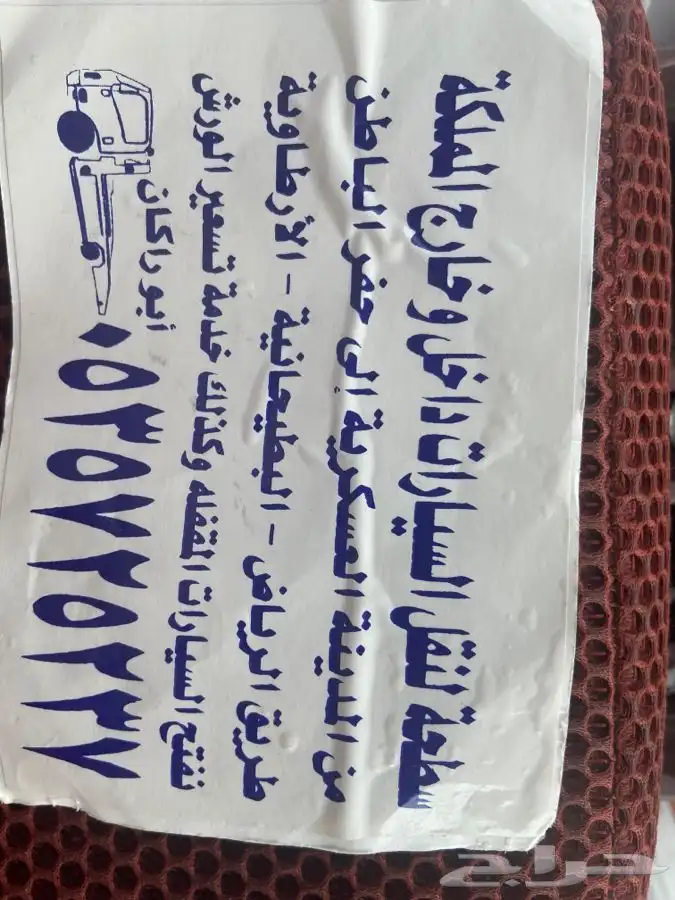 سطحة لنقل السيارات داخل وخارج المملكة
من المدينة العسكرية إلى حفر الباطن
طريق الرياض - البطيحانية - الأرطاوية
نفتح السيارات المقفله وكذلك خدمة تسعير الورش
أبو راكان
٠٥٣٥٧٢٥٢٣٧
حراج